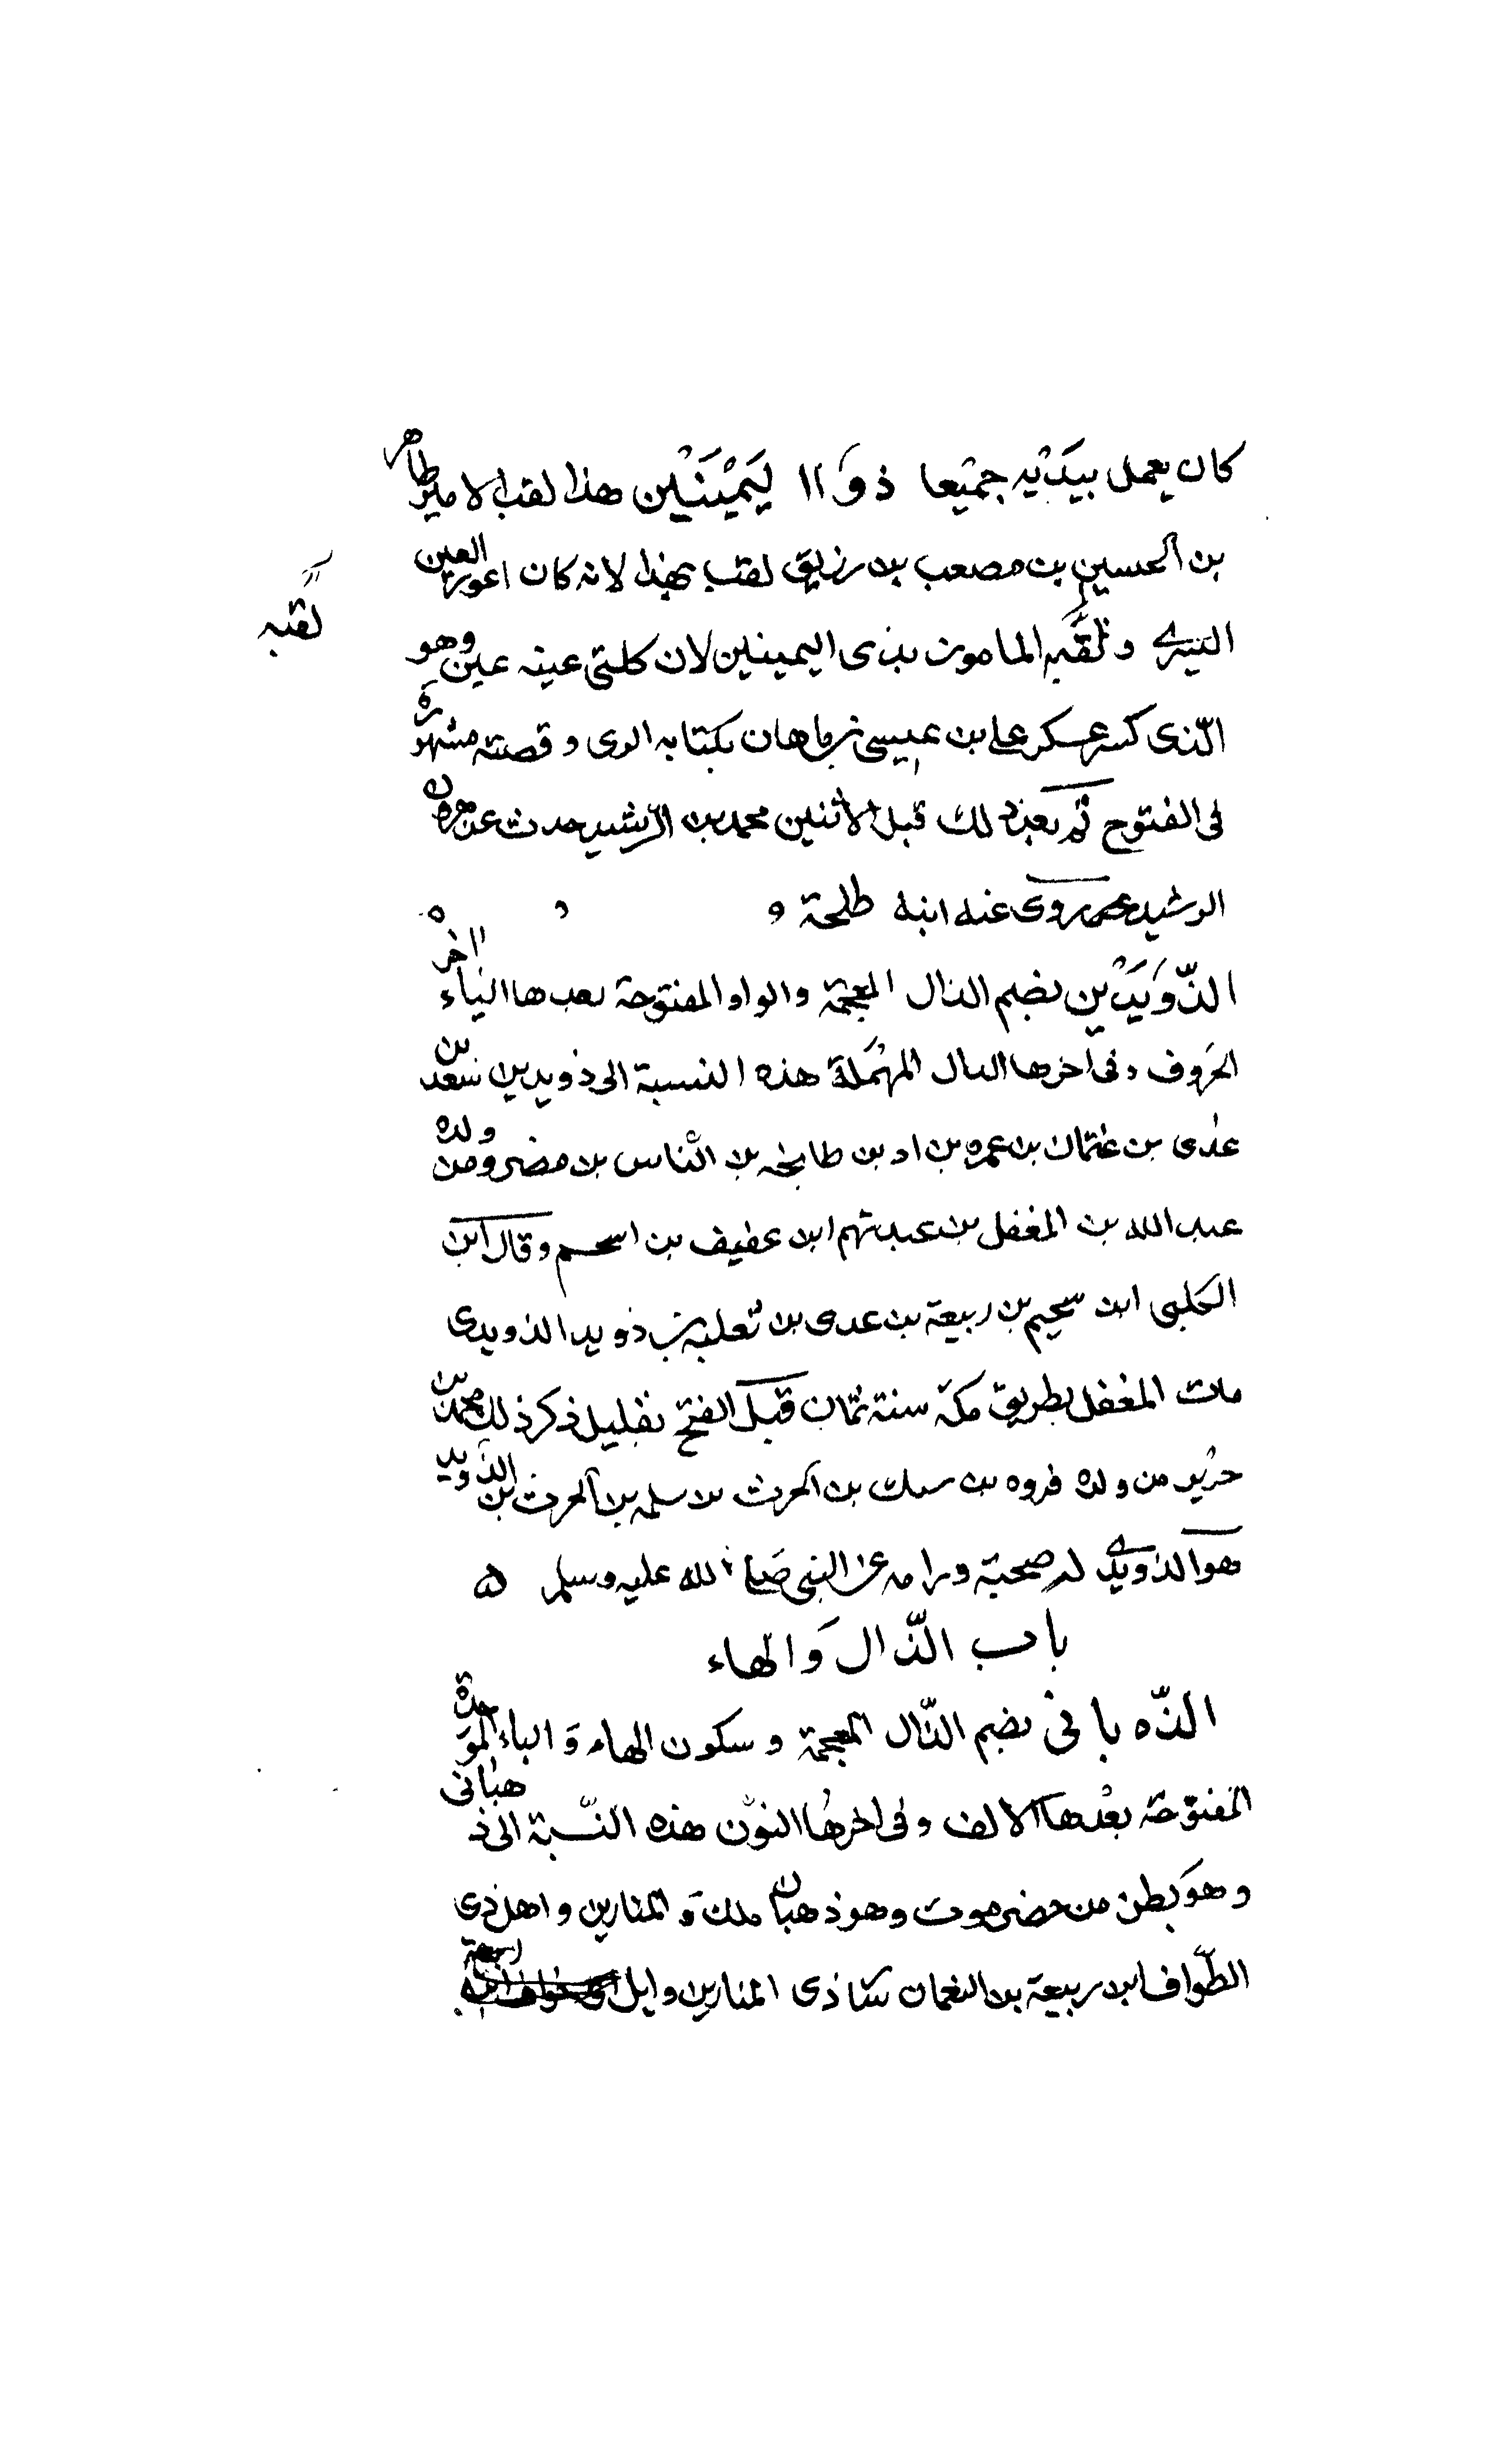 كان يعمل بيديه جميعا ذو اليمينين هذا لقب الامير طاهر
بن الحسين بن مصعب بن رزيق لقب بهذا لانه كان اعور العين
اليسرى ولقبه المامون بذى اليمينين لان كلتى عينه عين وهو
لقبه
الذى كسر عسكر على بن عيسى بن ماهان بكتابه الرى وقصته مشهورة
فى الفتوح ثم بعد ذلك قبل الاثنين محمد بن الرشيد حدث عن هرون
الرشيد روى عنه ابنه طلحة
الذويدين بضم الذال المعجمة والواو المفتوحة بعدها الياء اخر
الحروف وفى اخرها الدال المهملة هذه النسبة الى ذويد بن سعد بن
عدى بن عثمان بن عمرو بن اد بن طابخه بن الناس بن مضر ومن ولده
عبد الله بن المغفل بن عبد نهم ابن عفيف بن اسحم وقال ابن
الكلبى ابن سحيم بن ربيعة بن عدى بن ثعلبه بن ذويد الذويدى
مات المغفل بطريق مكة سنة ثمان قبل الفتح بقليل ذكر ذلك محمد بن
جرير من ولده فروه بن بن الحرث بن سلمه بن الحرث بن الذويد
هو الذويدى له صحبة عن النبى صلى الله عليه وسلم ه
باب الذال والهاء
الذهبانى بضم الذال المعجمة وسكون الهاء والباء الموحدة
المفتوحة بعدها الالف وفى اخرها النون هذه النسبة الى ذهبانى
وهو بطن من حضرموت وهو ذهبان بن ملك و المنارين واهل ذى
الطواف ابن ربيعة بن النعمان ذى المنارين وايل